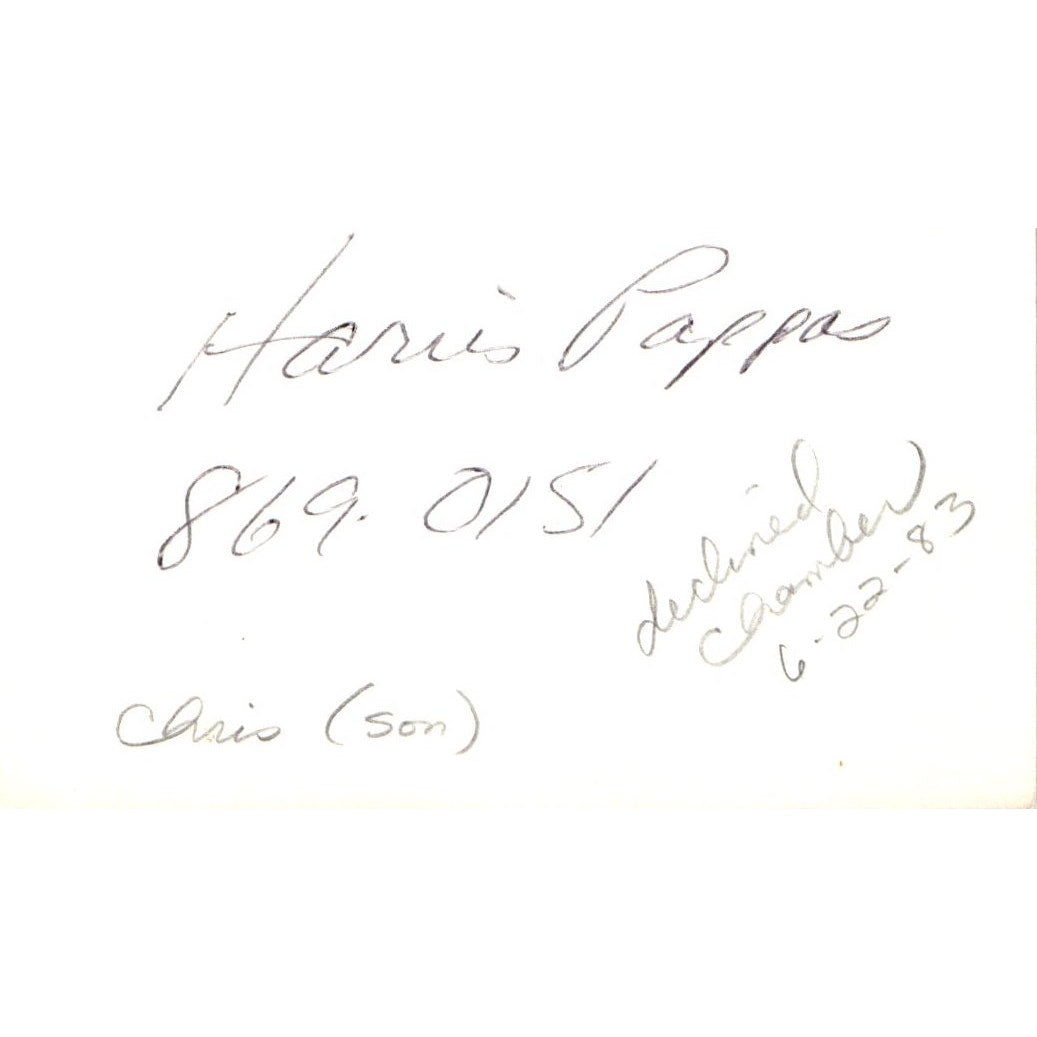 Harris Pappas
869-0151
declined
chamber
6-22-83
Chris (son)